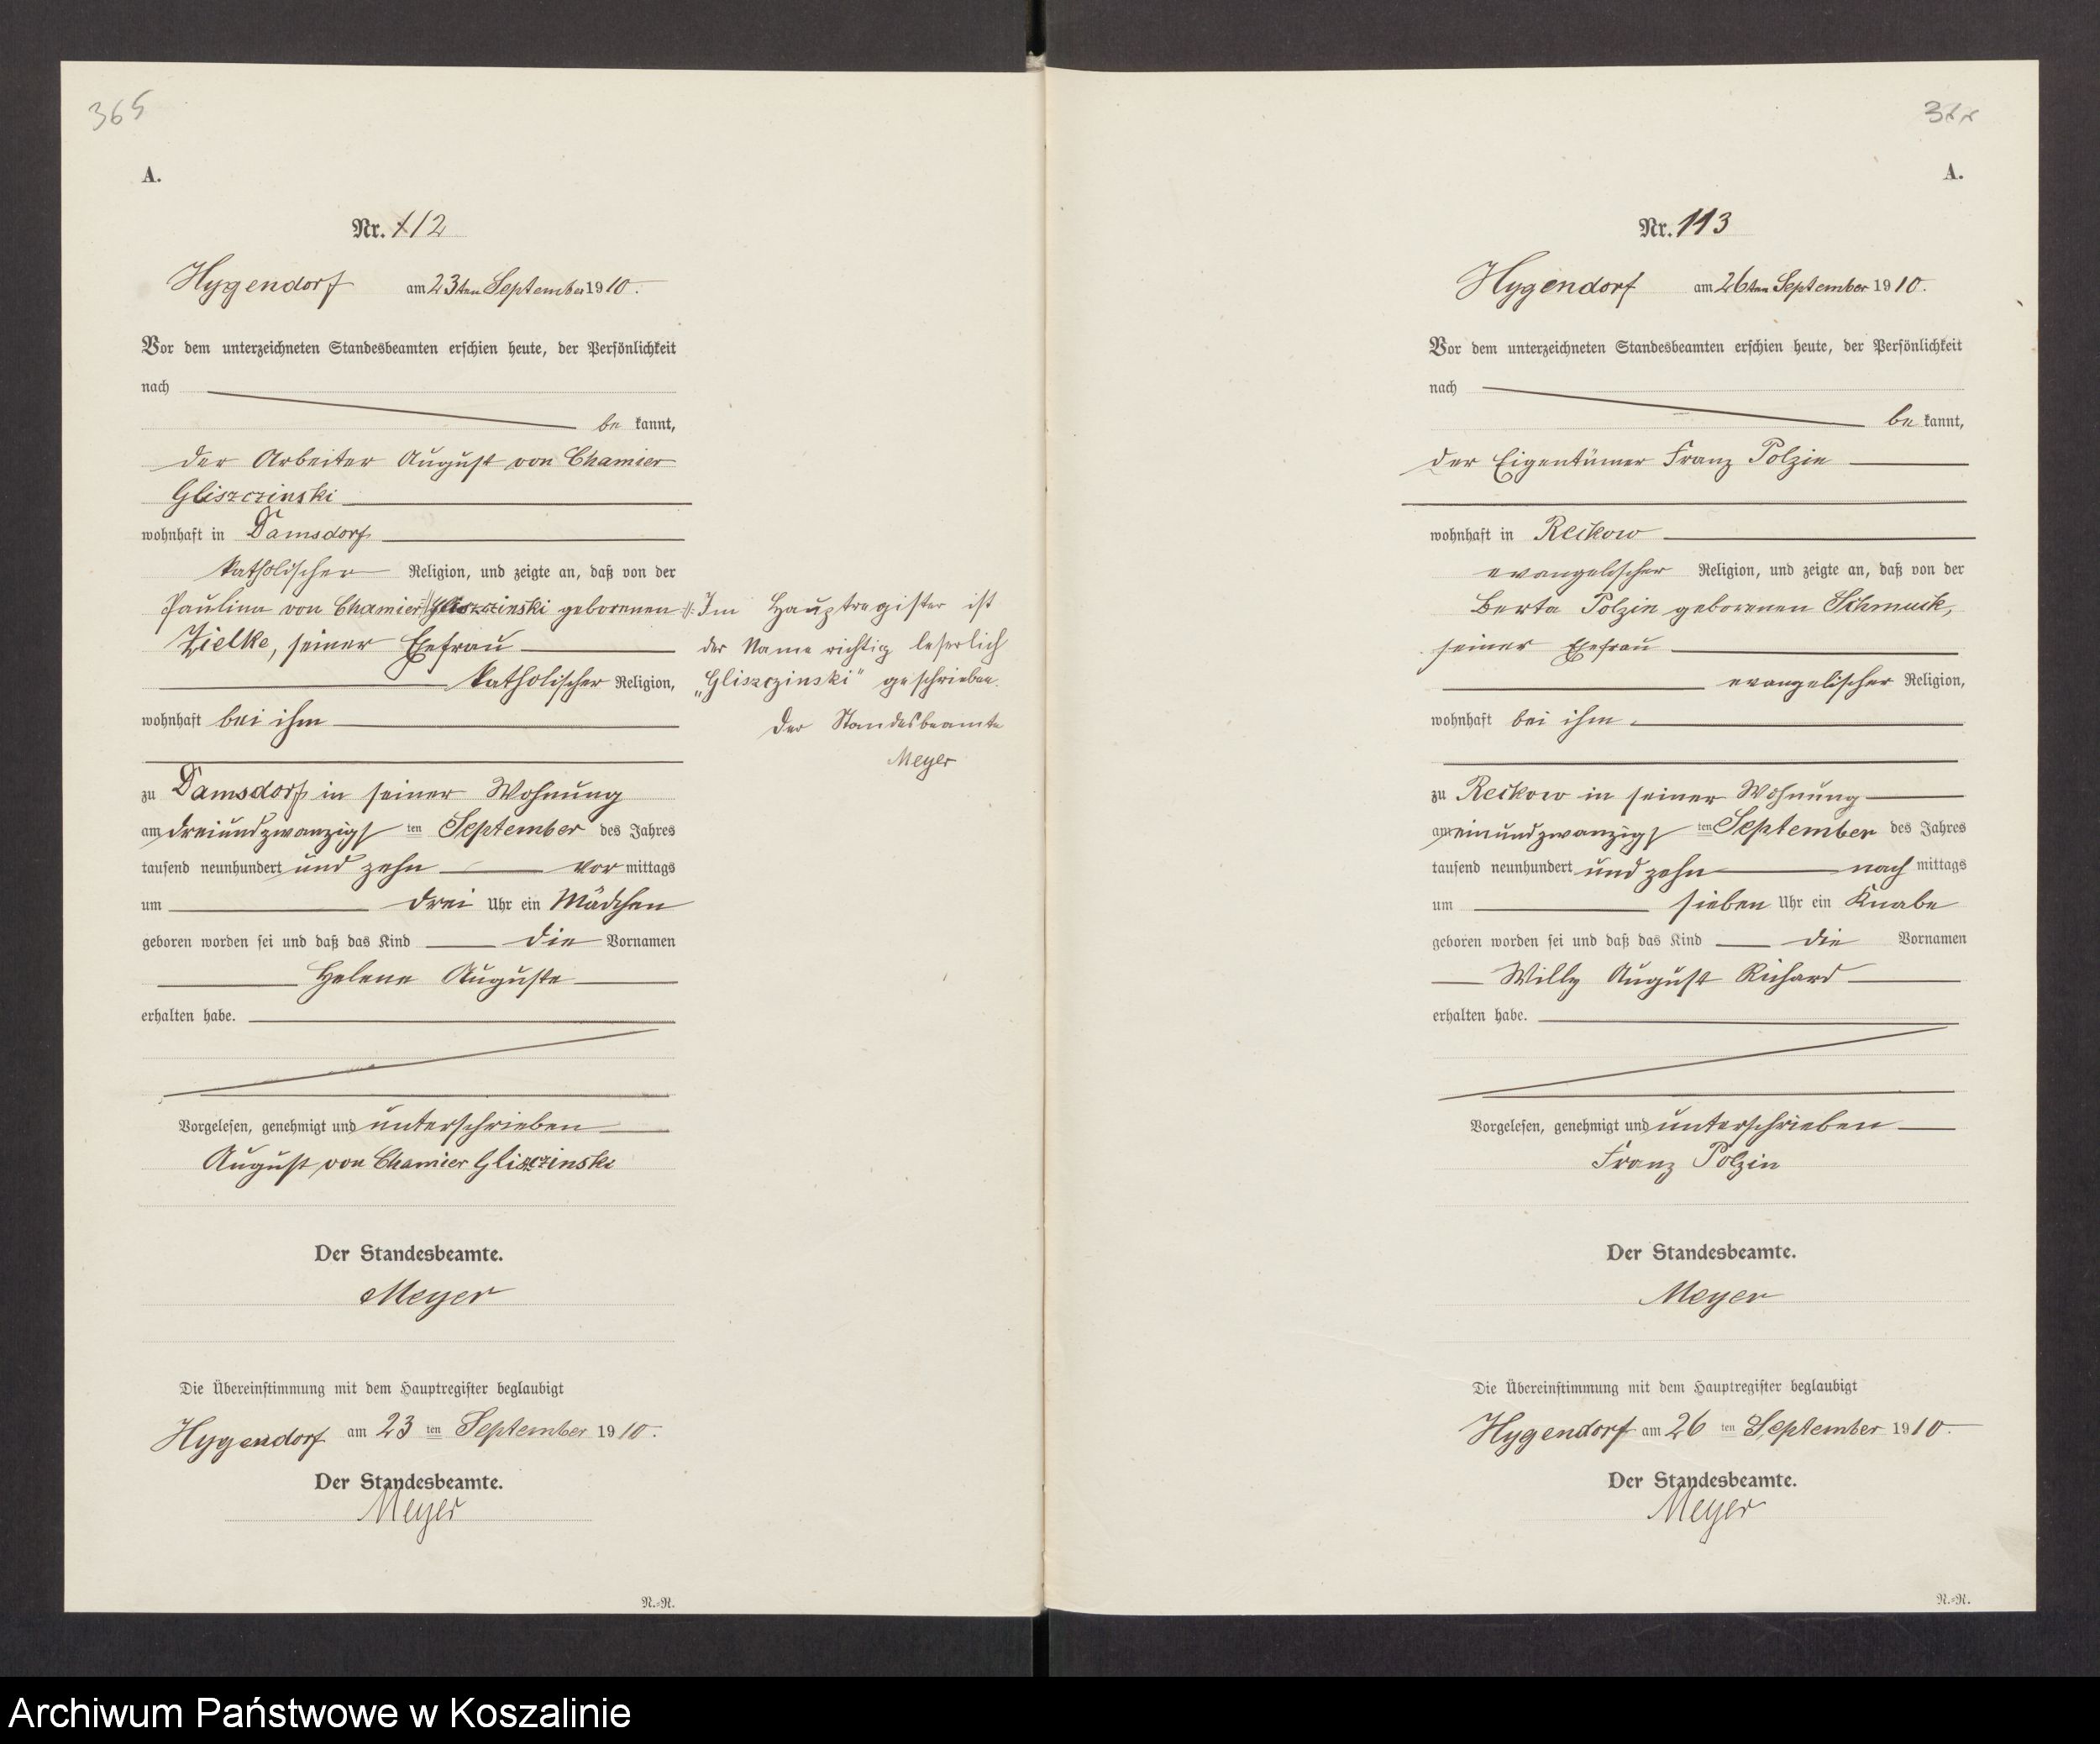 365
A.
Nr. 112
Hygendorf am 23ten September 1910.
Vor dem unterzeichneten Standesbeamten erschien heute, der Persönlichkeit
nach
be kannt,
der Arbeiter August von Chamier
Gliszczinski
wohnhaft in Damsdorf
katholischer Religion, und zeigte an, daß von der
Pauline von Chamier Gliszczinski geborenen
Zielke, seiner Ehefrau
katholischer Religion,
wohnhaft bei ihm
zu Damsdorf in seiner Wohnung
am dreiundzwanzigsten September des Jahres
tausend neunhundert und zehn vor mittags
um drei Uhr ein Mädchen
geboren worden sei und daß das Kind die Vornamen
Helene Auguste
erhalten habe.
Vorgelesen, genehmigt und unterschrieben
August von Chamier Gliszczinski
Der Standesbeamte.
Meyer
Die Übereinstimmung mit dem Hauptregister beglaubigt
Hygendorf am 23 ten September 1910.
Der Standesbeamte.
Meyer
N.=N.
Im Hauptregister ist
der Name richtig leserlich
„Gliszczinski" geschrieben.
Der Standesbeamte
Meyer
A.
Nr. 113
Hygendorf am 26ten September 1910.
Vor dem unterzeichneten Standesbeamten erschien heute, der Persönlichkeit
nach
be kannt,
der Eigentümer Franz Polzin
wohnhaft in Reckow
evangelischer Religion, und zeigte an, daß von der
Berta Polzin geborenen Schmuck,
seiner Ehefrau
evangelischer Religion,
wohnhaft bei ihm
zu Reckow in seiner Wohnung
am einundzwanzigsten September des Jahres
tausend neunhundert und zehn nach mittags
um sieben Uhr ein Knabe
geboren worden sei und daß das Kind die Vornamen
Willy August Richard
erhalten habe.
Vorgelesen, genehmigt und unterschrieben
Franz Polzin
Der Standesbeamte.
Meyer
Die Übereinstimmung mit dem Hauptregister beglaubigt
Hygendorf am 26 ten September 1910.
Der Standesbeamte.
Meyer
N.=N.
Archiwum Państwowe w Koszalinie